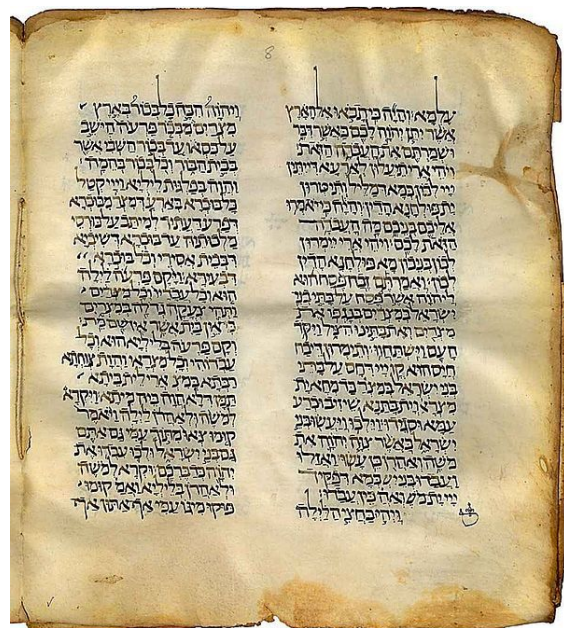 עלמא והיה כי תבאו אל הארץ
אשר יתן יהוה לכם כאשר דבר
ושמרתם את העבדה הזאת
ויהי ארי תיעלון לארעא דייתין
ייי לכון כמא דמליל ותיטרון
ית פולחנא הדין והיה כי יאמרו
אליכם בניכם מה העבדה
הזאת לכם ויהי ארי יימרון
לכון בניכון מא פולחנא הדין
לכון ואמרתם זבח פסח הוא
ליהוה אשר פסח על בתי בני
ישראל במצרים בנגפו את
מצרים ואת בתינו הציל ויקד
העם וישתחוו ותימרון דיבח
חיס הוא קדם ייי דחס על בתי
בני ישראל במצר כד מחא ית
מצראי וית בתנא שיזיב וכרע
עמא וסגידו וילכו ויעשו בני
ישראל כאשר צוה יהוה את
משה ואהרן כן עשו ואזלו
ועבדו בני יש כמא דפקיד
ייי ית משה ואה כין עבדו
ויהי בחצי הלילה
ויהוה הכה כל בכור בארץ
מצרים מבכר פרעה הישב
על כסאו עד בכור השבי אשר
בבית הבור וכל בכור בהמה
והוה בפלגות ליליא וייי קטל
כל בוכרא בארעא דמצר מבוכרא
דפרעה דעתיד למיתב על כורסי
מלכותיה עד בוכרא דשיביא
דבבית אסירי וכל בוכרא
דבעירא ויקם פרעה לילה
הוא וכל עבדיו וכל מצרים
ותהי צעקה גדלה במצרים
כי אין בית אשר אין שם מת
וקם פרעה בליליא הוא וכל
עבדוהי וכל מצראי והות צוחתא
רבתא במצ ארי לית ביתא
תמן דלא הוה ביה מיתא ויקרא
למשה ולאהרן לילה ויאמר
קומו צאו מתוך עמי גם אתם
גם בני ישראל ולכו עבדו את
יהוה כדברכם וקרא למשה
ולאהרן בליליא ואמ קומו
פוקו מיגו עמי אף אתון אף